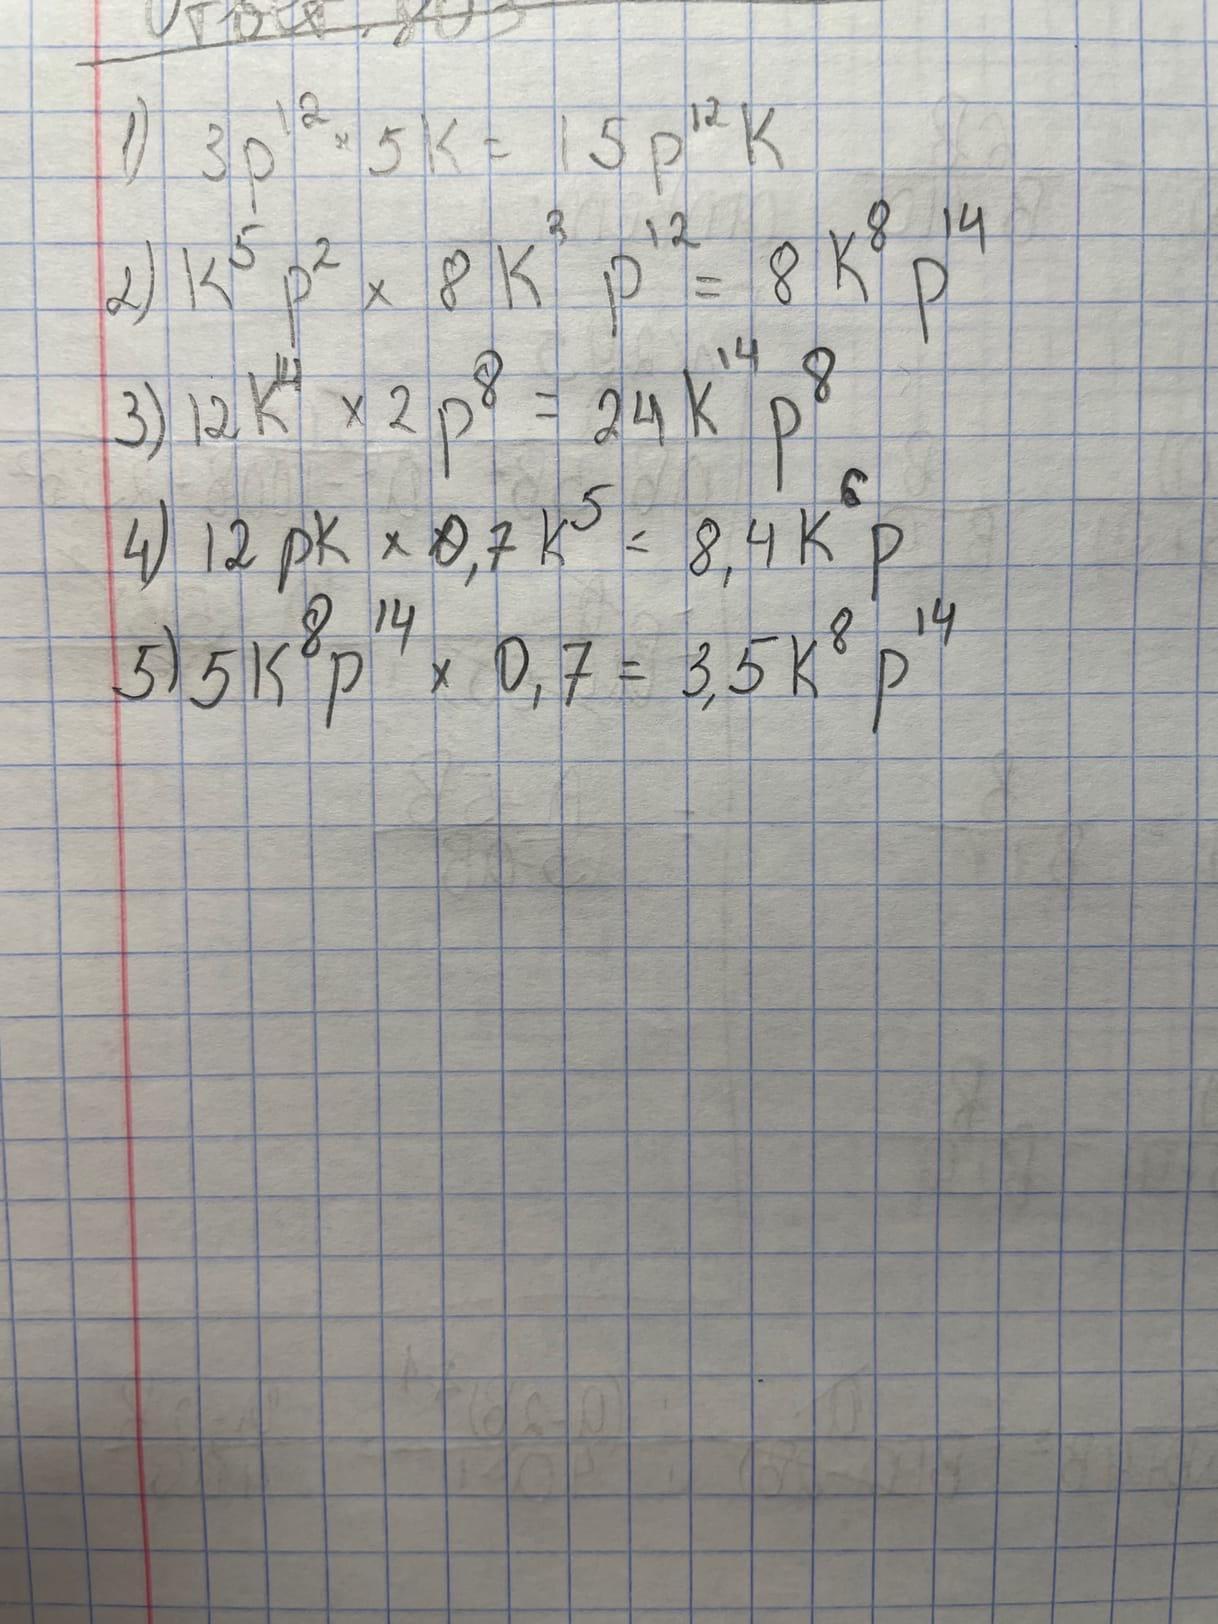 1) 3p¹² × 5k = 15p¹²k
2) k⁵p² × 8k³p¹² = 8k⁸p¹⁴
3) 12k¹⁴ × 2p⁸ = 24k¹⁴p⁸
4) 12pk × 0,7k⁵ = 8,4k⁶p
5) 5k⁸p¹⁴ × 0,7 = 3,5k⁸p¹⁴